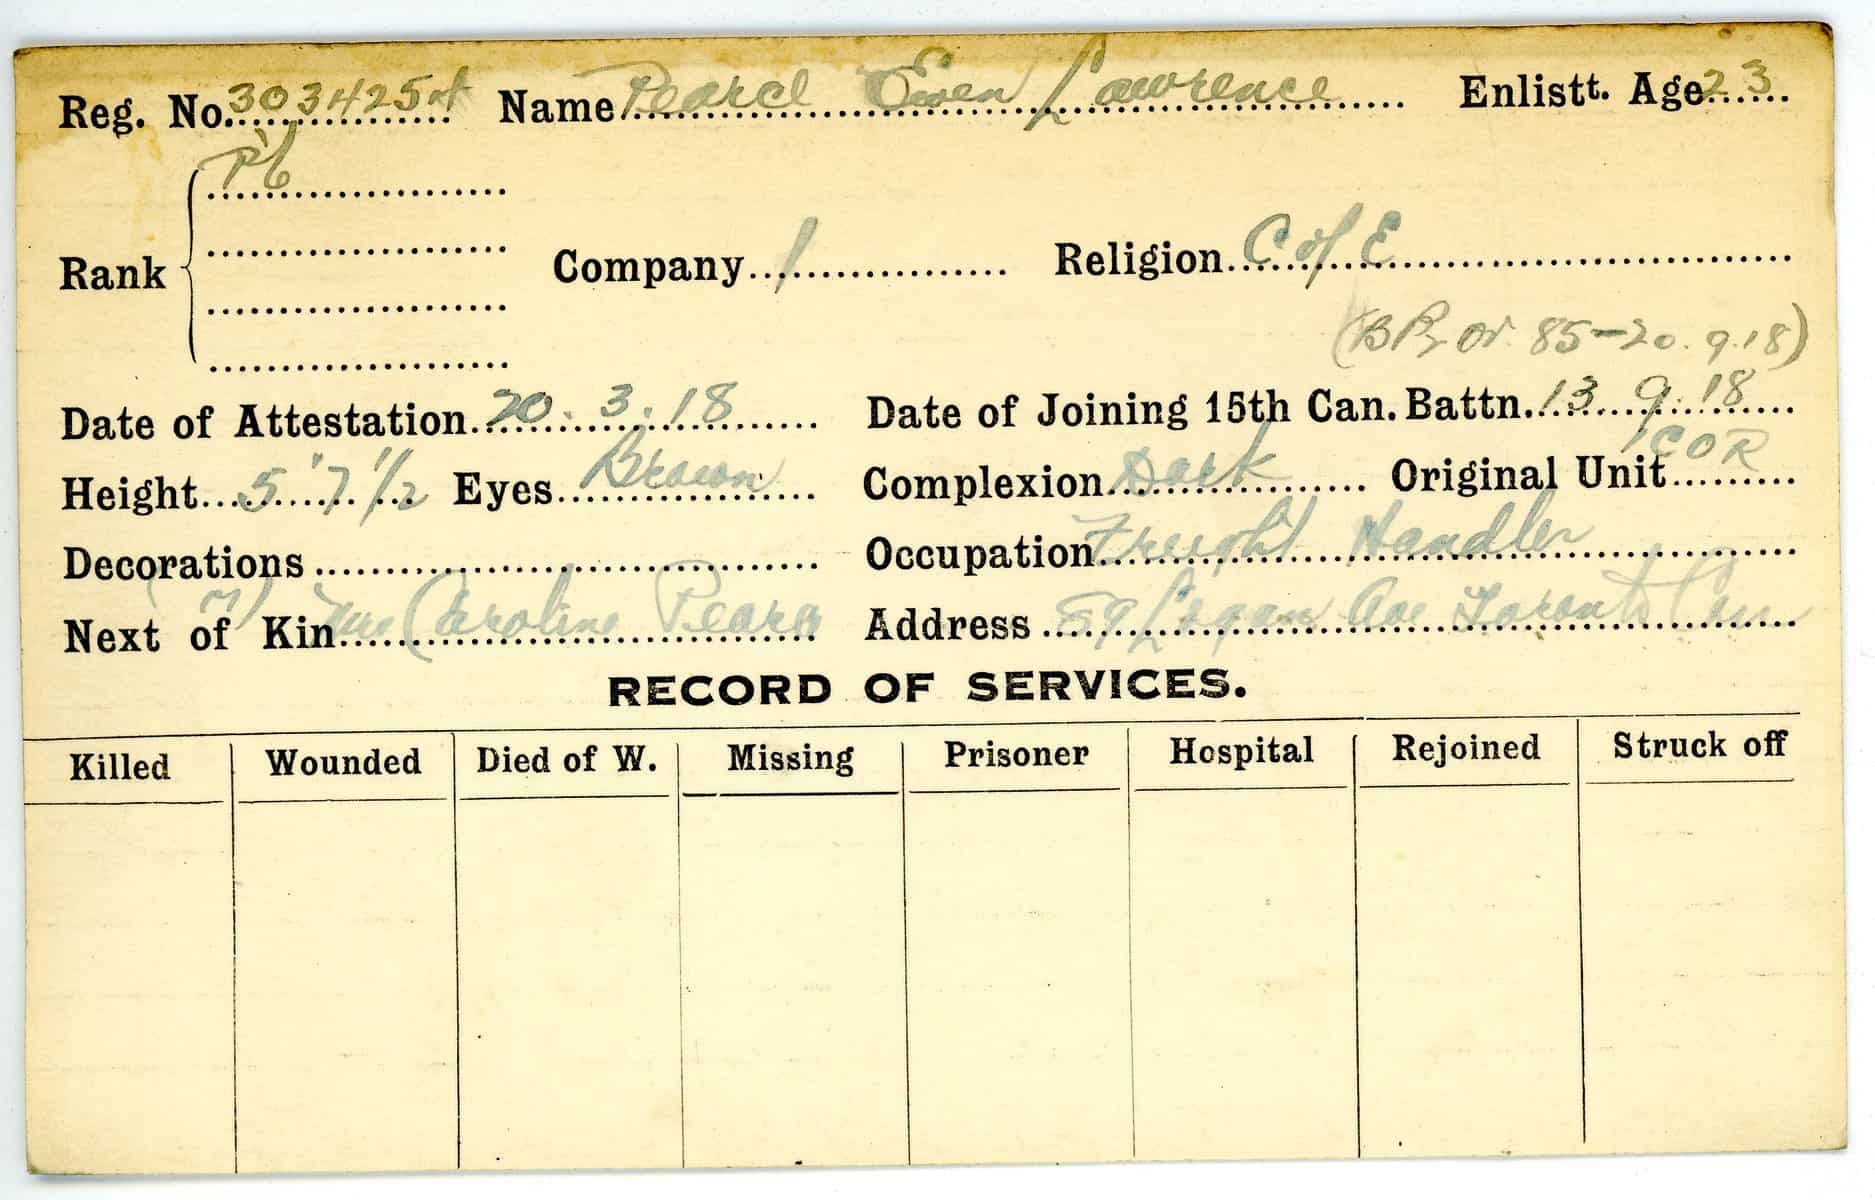 Reg. No. 3034254 Name Pearce Owen Lawrence Enlistt. Age 23
Pte
Rank Company 1 Religion C of E
(B Pt. Or. 85-20.9.18)
Date of Attestation 20.3.18 Date of Joining 15th Can. Battn. 13.9.18
Height 5'7½ Eyes Brown Complexion Dark Original Unit 1COR
Decorations Occupation Freight Handler
(M)
Next of Kin Mrs Caroline Pearce Address 59 Logan Ave Toronto Can
RECORD OF SERVICES.
Killed Wounded Died of W. Missing Prisoner Hospital Rejoined Struck off